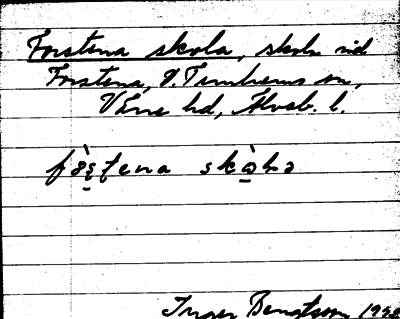 Forstena skola, skola vid
Forstena, V. Tunhems sn,
Väne hd, Älvsb. l.
fɔ̀ṣṭena skɔ̀la
Inger Bengtsson 19